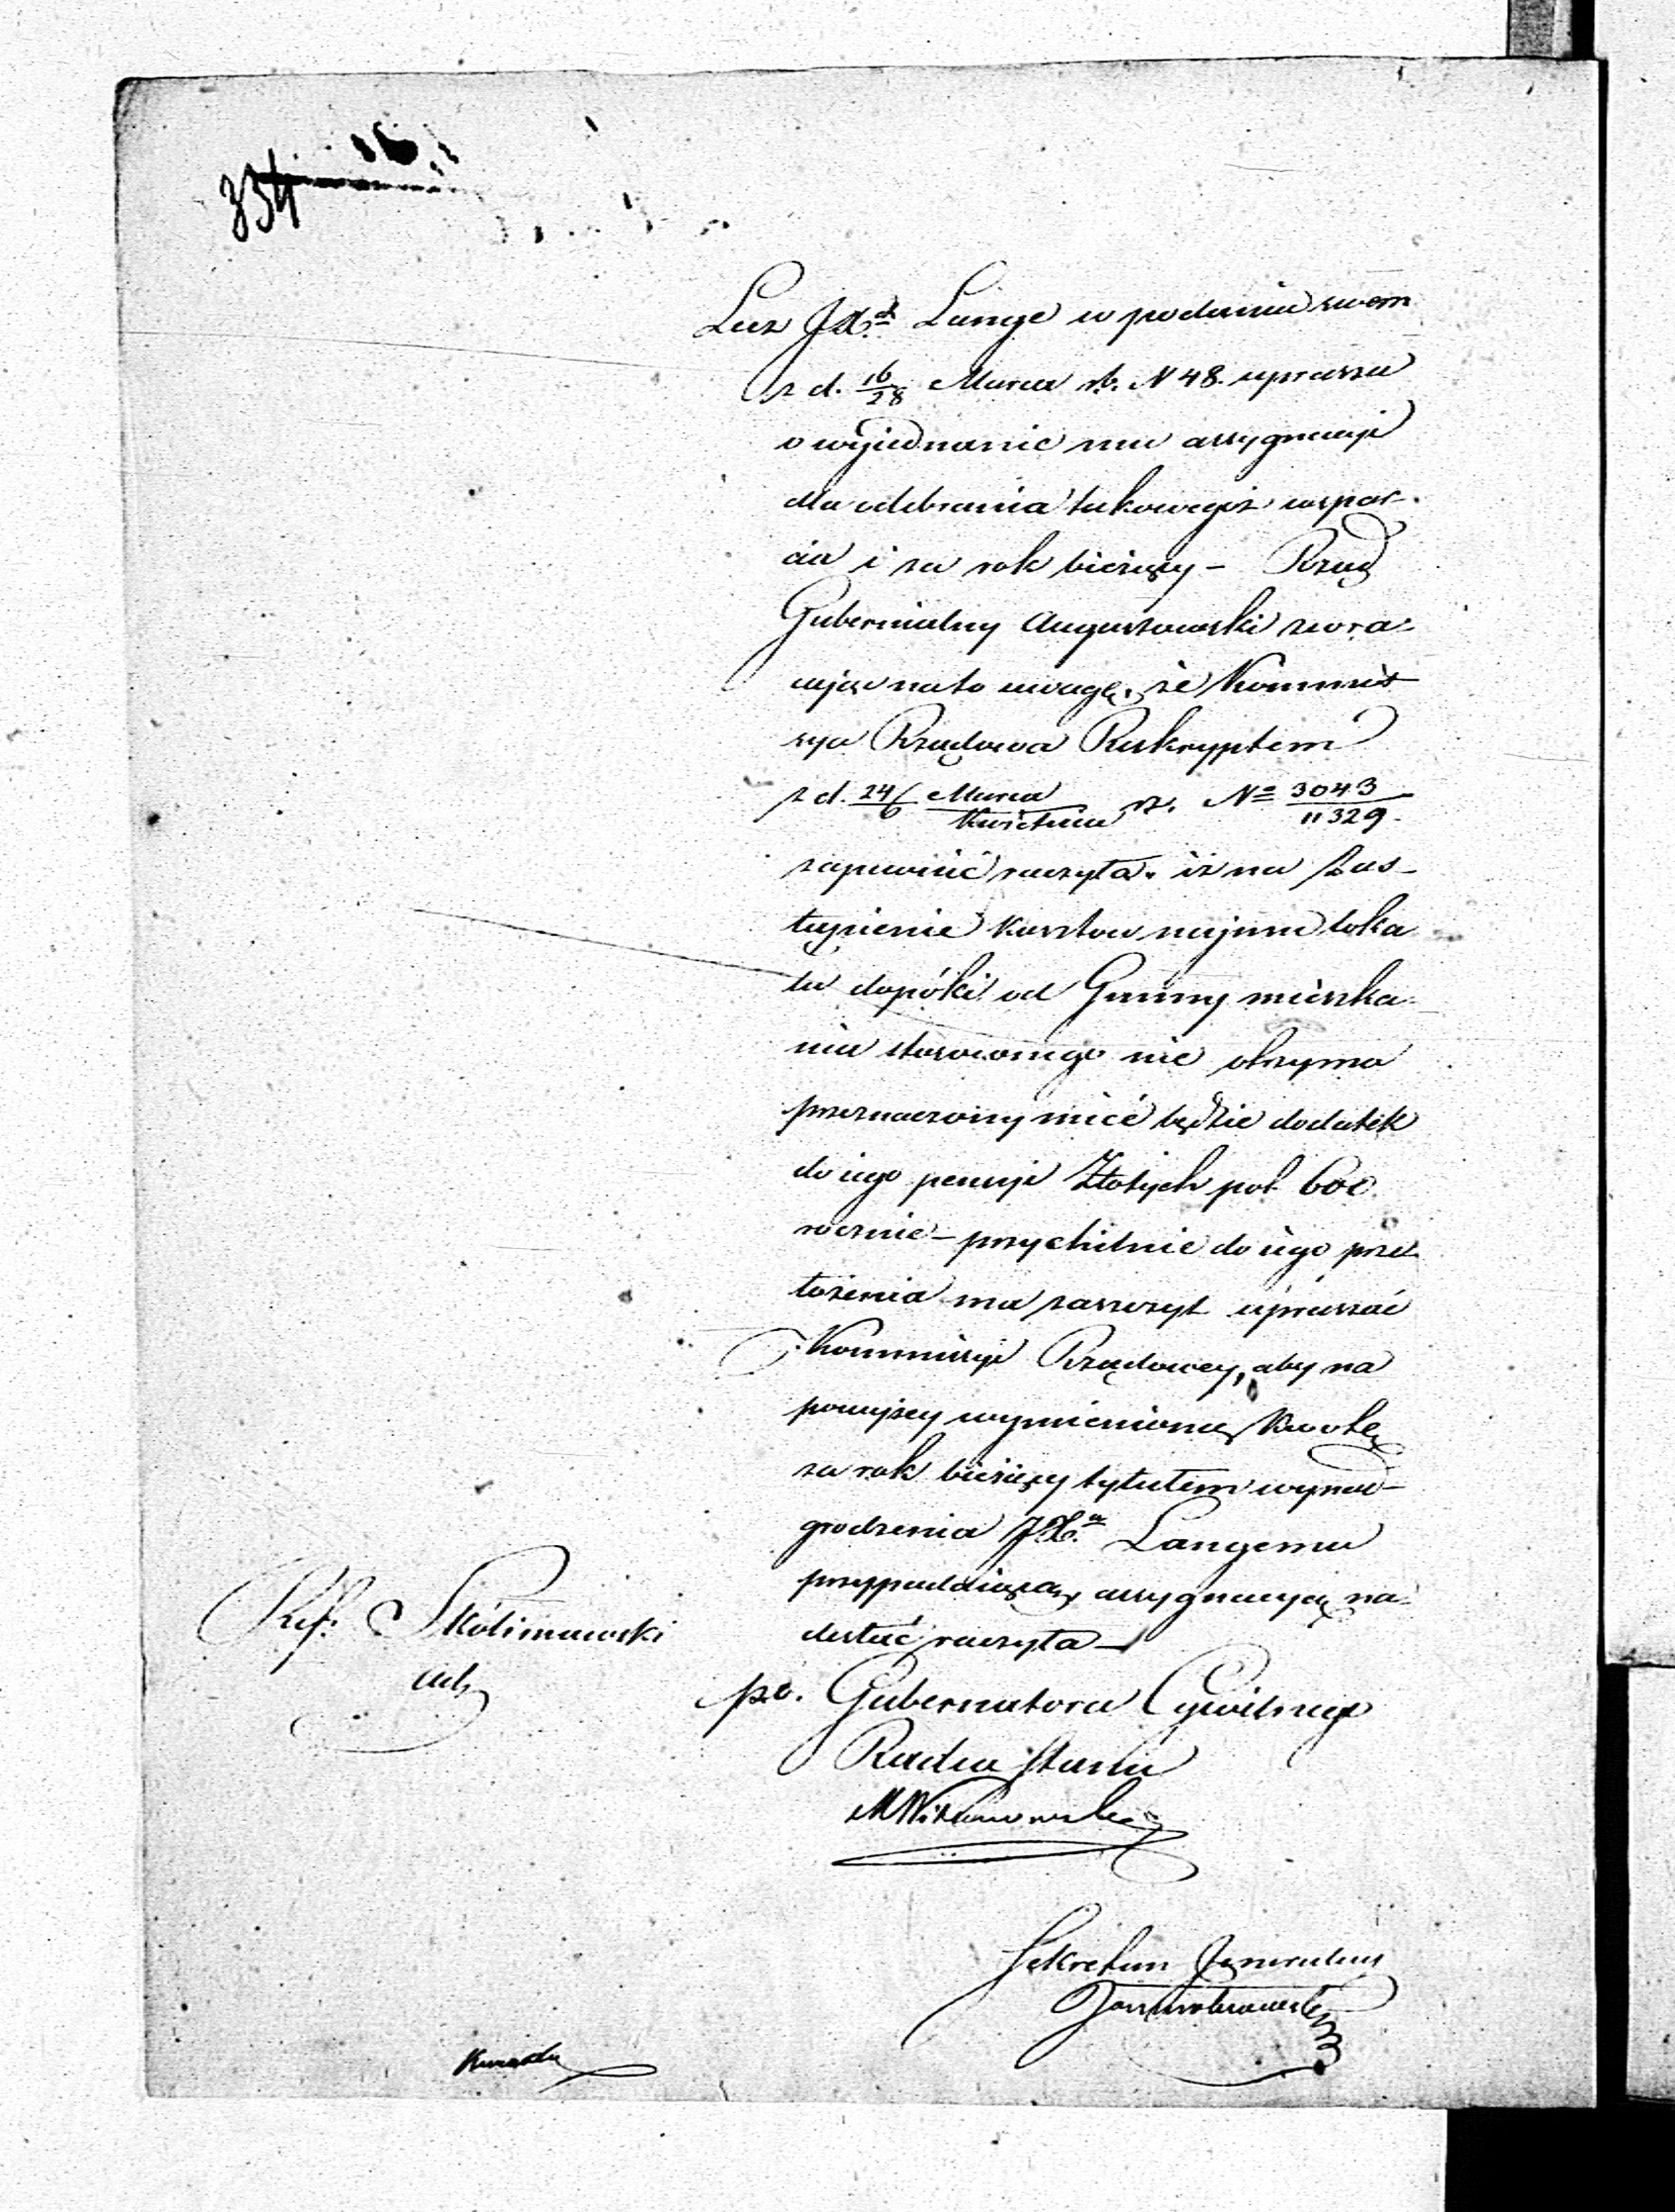 334
16
Lecz JX.d Lange w podaniu swem
z d. 16/28 Marca rb. N 48. uprasza
o wyjednanie mu assygnacyi
dla odebrania takowegoż wspar-
cia i za rok bieżący – Rząd
Gubernialny Augustowski zwra-
cając na to uwagę, że Kommis-
sya Rządowa Reskryptem
z d. 24/6 Marca/Kwietnia rz. No 3043/11329.
zapewnić raczyła, iż na Zas-
tąpienie kosztów najmu loka
lu dopóki od Gminy mieszka-
nia stosownego nie otrzyma
przeznaczony mieć będzie dodatek
do iego pensyi Złotych pol. 600
rocznie – przychilnie do iego prze-
łożenia ma zaszczyt upraszać
Kommissyi Rządowey, aby na
powyżey wymienioną Kwotę
za rok bieżący tytułem wynad-
grodzenia JX.a Langemu
przypadaiącą, assygnacyę na-
desłać raczyła –
p.o. Gubernatora Cywilnego
Radca Stanu
Sekretarz Jeneralny
Ref: Skolimowski